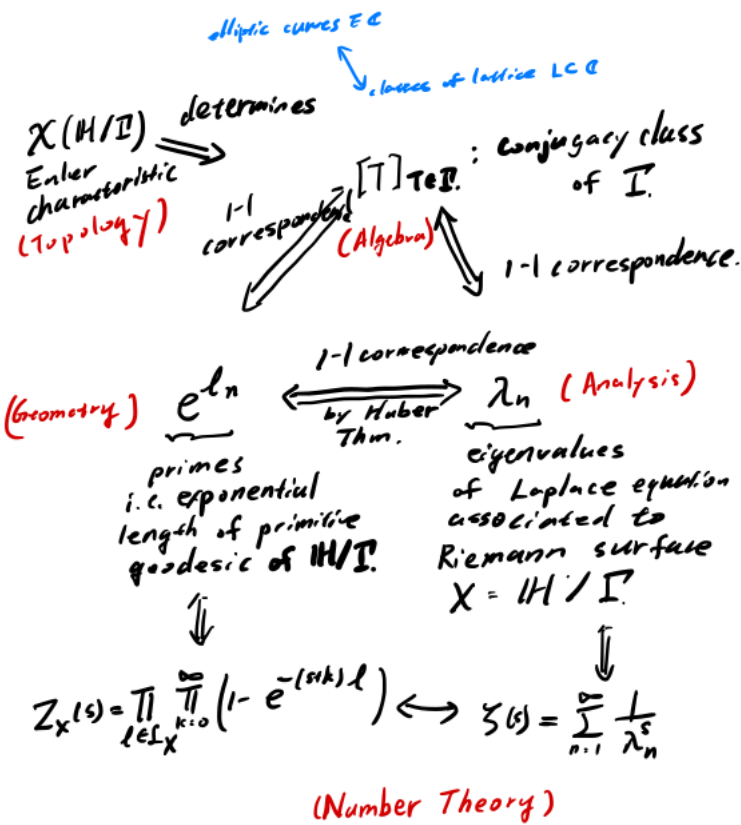 elliptic curves E ℂ
classes of lattice L ⊂ ℂ
χ(ℍ/Γ) ⟹ determines
Euler
characteristic
(Topology)
[T]_{T∈Γ} : conjugacy class
of Γ.
1-1
correspondence
(Algebra)
1-1 correspondence.
1-1 correspondence
(Geometry) e^{l_n} ⟺ λ_n (Analysis)
by Huber
Thm.
primes
i.e. exponential
length of primitive
geodesic of ℍ/Γ.
eigenvalues
of Laplace equation
associated to
Riemann surface
X = ℍ/Γ.
Z_X(s) = ∏_{l∈L_X} ∏_{k=0}^{∞} (1 - e^{-(s+k)l}) ⟷ ζ(s) = ∑_{n=1}^{∞} 1/λ_n^s
(Number Theory)